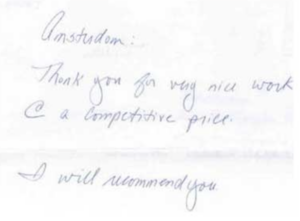 Amstudam:
Thank you for very nice work
@ a competitive price.
I will recommend you